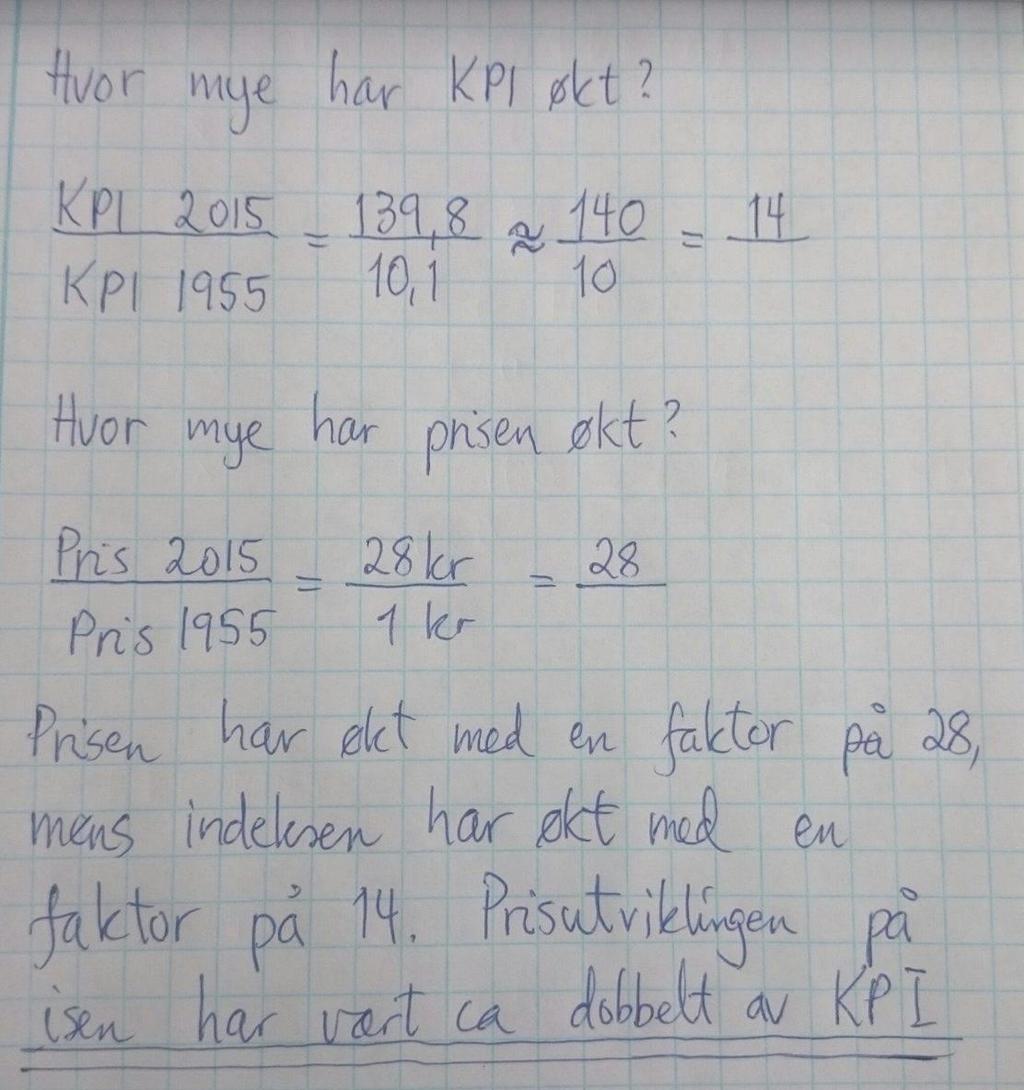 Hvor mye har KPI økt?
KPI 2015 / KPI 1955 = 139,8 / 10,1 ≈ 140 / 10 = 14
Hvor mye har prisen økt?
Pris 2015 / Pris 1955 = 28 kr / 1 kr = 28
Prisen har økt med en faktor på 28,
mens indeksen har økt med en
faktor på 14. Prisutviklingen på
isen har vært ca dobbelt av KPI